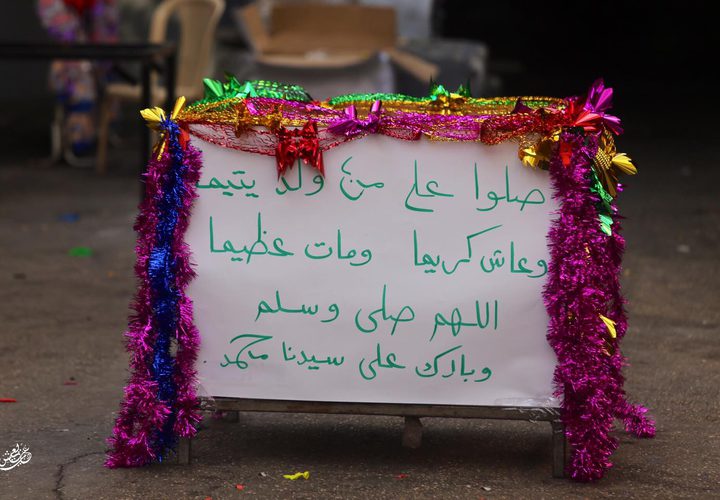 صلوا على من ولد يتيما
وعاش كريما ومات عظيما
اللهم صلى وسلم
وبارك على سيدنا محمد